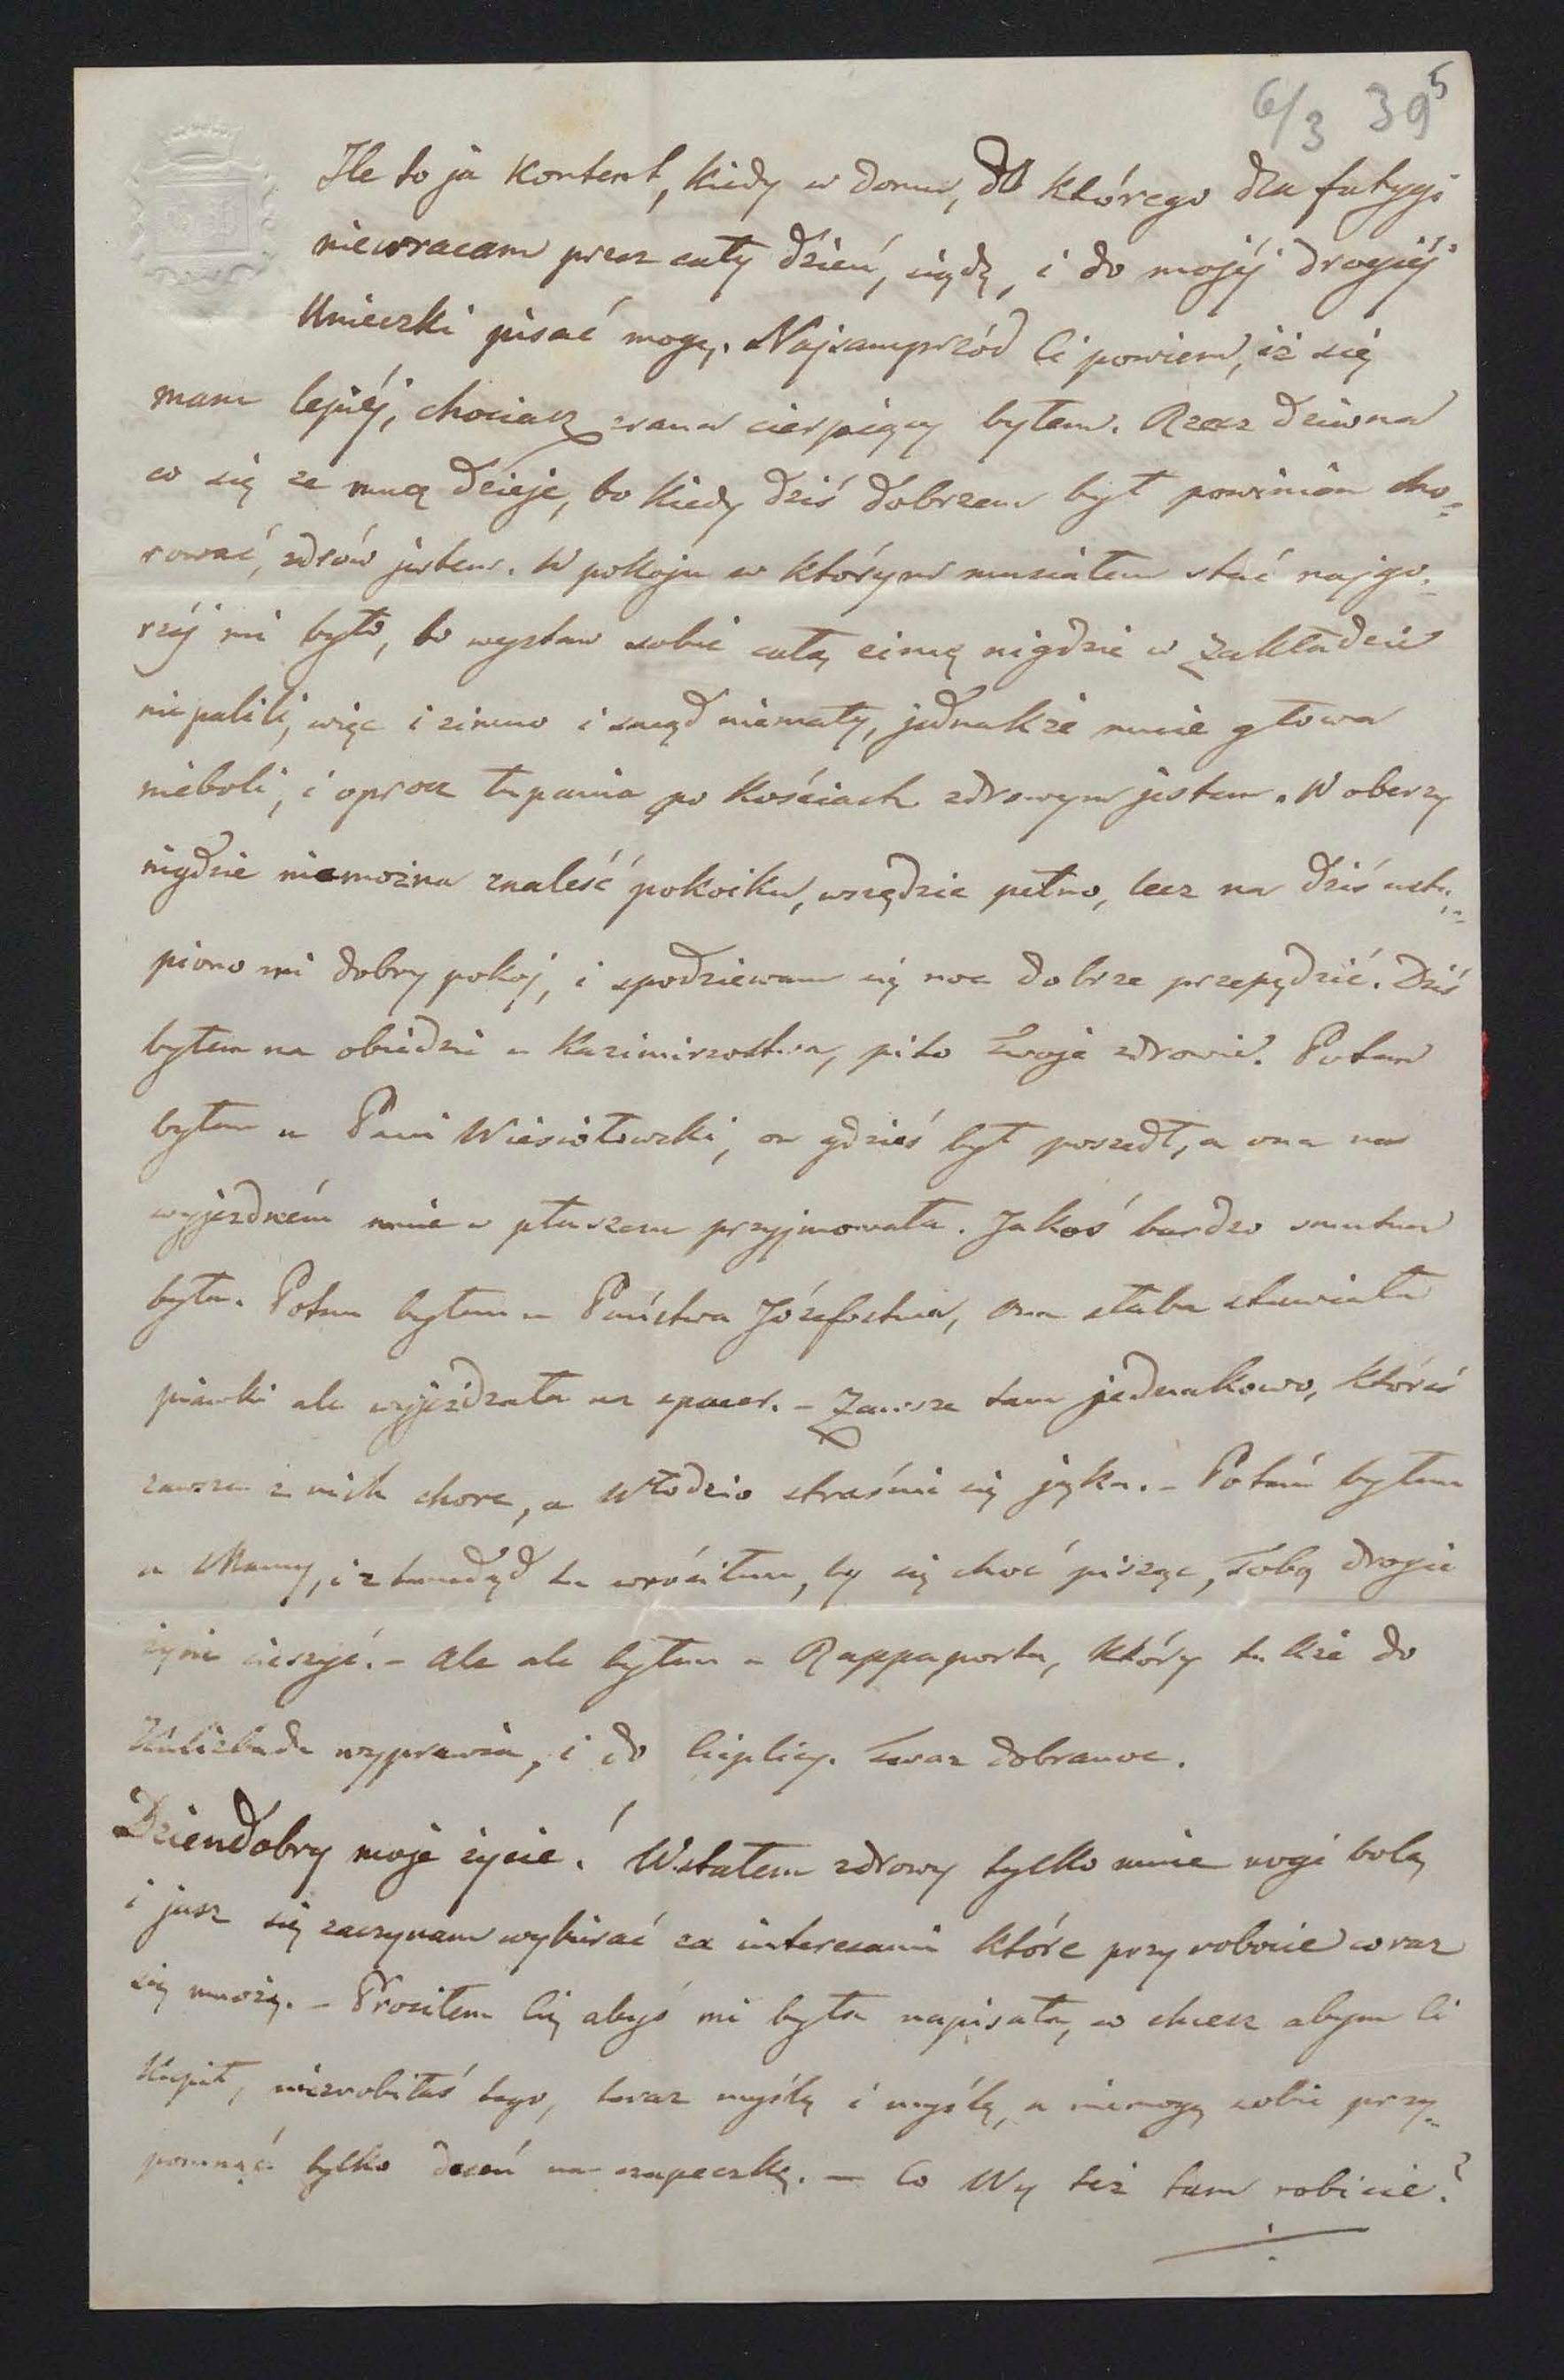 6/3 39 5
Ile to ja kontent, kiedy w domu, do którego dla fatygi
niewracam przez cały dzień, siędę, i do mojéj drogiéj
Unieczki pisać mogę. Najsamprzód Ci powiem, iż się
mam lepiéj, chociasz zrana cierpiący byłem. Rzecz dziwna
co się ze mną dzieje, bo kiedy dziś dobrzem był powinien cho=
rować, zdrów jestem. W pokoju w którym musiałem stać najgo=
rzéj mi było, bo wystaw sobie całą zimę nigdzie w Zakładzie
niepalili, więc i zimno i smąd niemały, jednakże mnie głowa
nieboli, i oprocz łupania po kościach zdrowym jestem. W oberzy
nigdzie niemożna znaleść pokoiku, wszędzie pełno, lecz na dziś ustą=
piono mi dobry pokoj, i spodziewam się noc dobrze przepędzić. Dziś
byłem na obiedzie u Kazimirzostwa, piło Twoje zdrowie. Potem
byłem u Pani Wiesiołowski, on gdzieś był poszedł, a ona na
wyjezdném mnie w płaszczu przyjmowała. Jakoś bardzo smutna
była. Potem byłem u Państwa Józefostwa, ona słaba stawiała
piawki ale wyjeżdzała na spacer. – Zawsze tam jednakowo, któreś
zawsze z nich chore, a Włodzio straśnie się jąka. – Potém byłem
u Mamy, i z tamdąd tu wróciłem, by się choć pisząc, Tobą drogie
życie cieszyć. – Ale ale byłem u Rappaporta, który także do
wyprawia, i do Cieplicy. Teraz dobranoc.
Dziendobry moje życie! Wstałem zdrowy tylko mnie nogi bolą
i jusz się zaczynam wybierać za interesami które przy robocie coraz
się mnożą. – Prosiłem Cię abyś mi była napisała, co chcesz abym Ci
kupił, niezrobiłaś tego, teraz myślę i myślę, a niemogę sobie przy=
pomnąć tylko deseń na czapeczkę. — Co Wy też tam robicie?